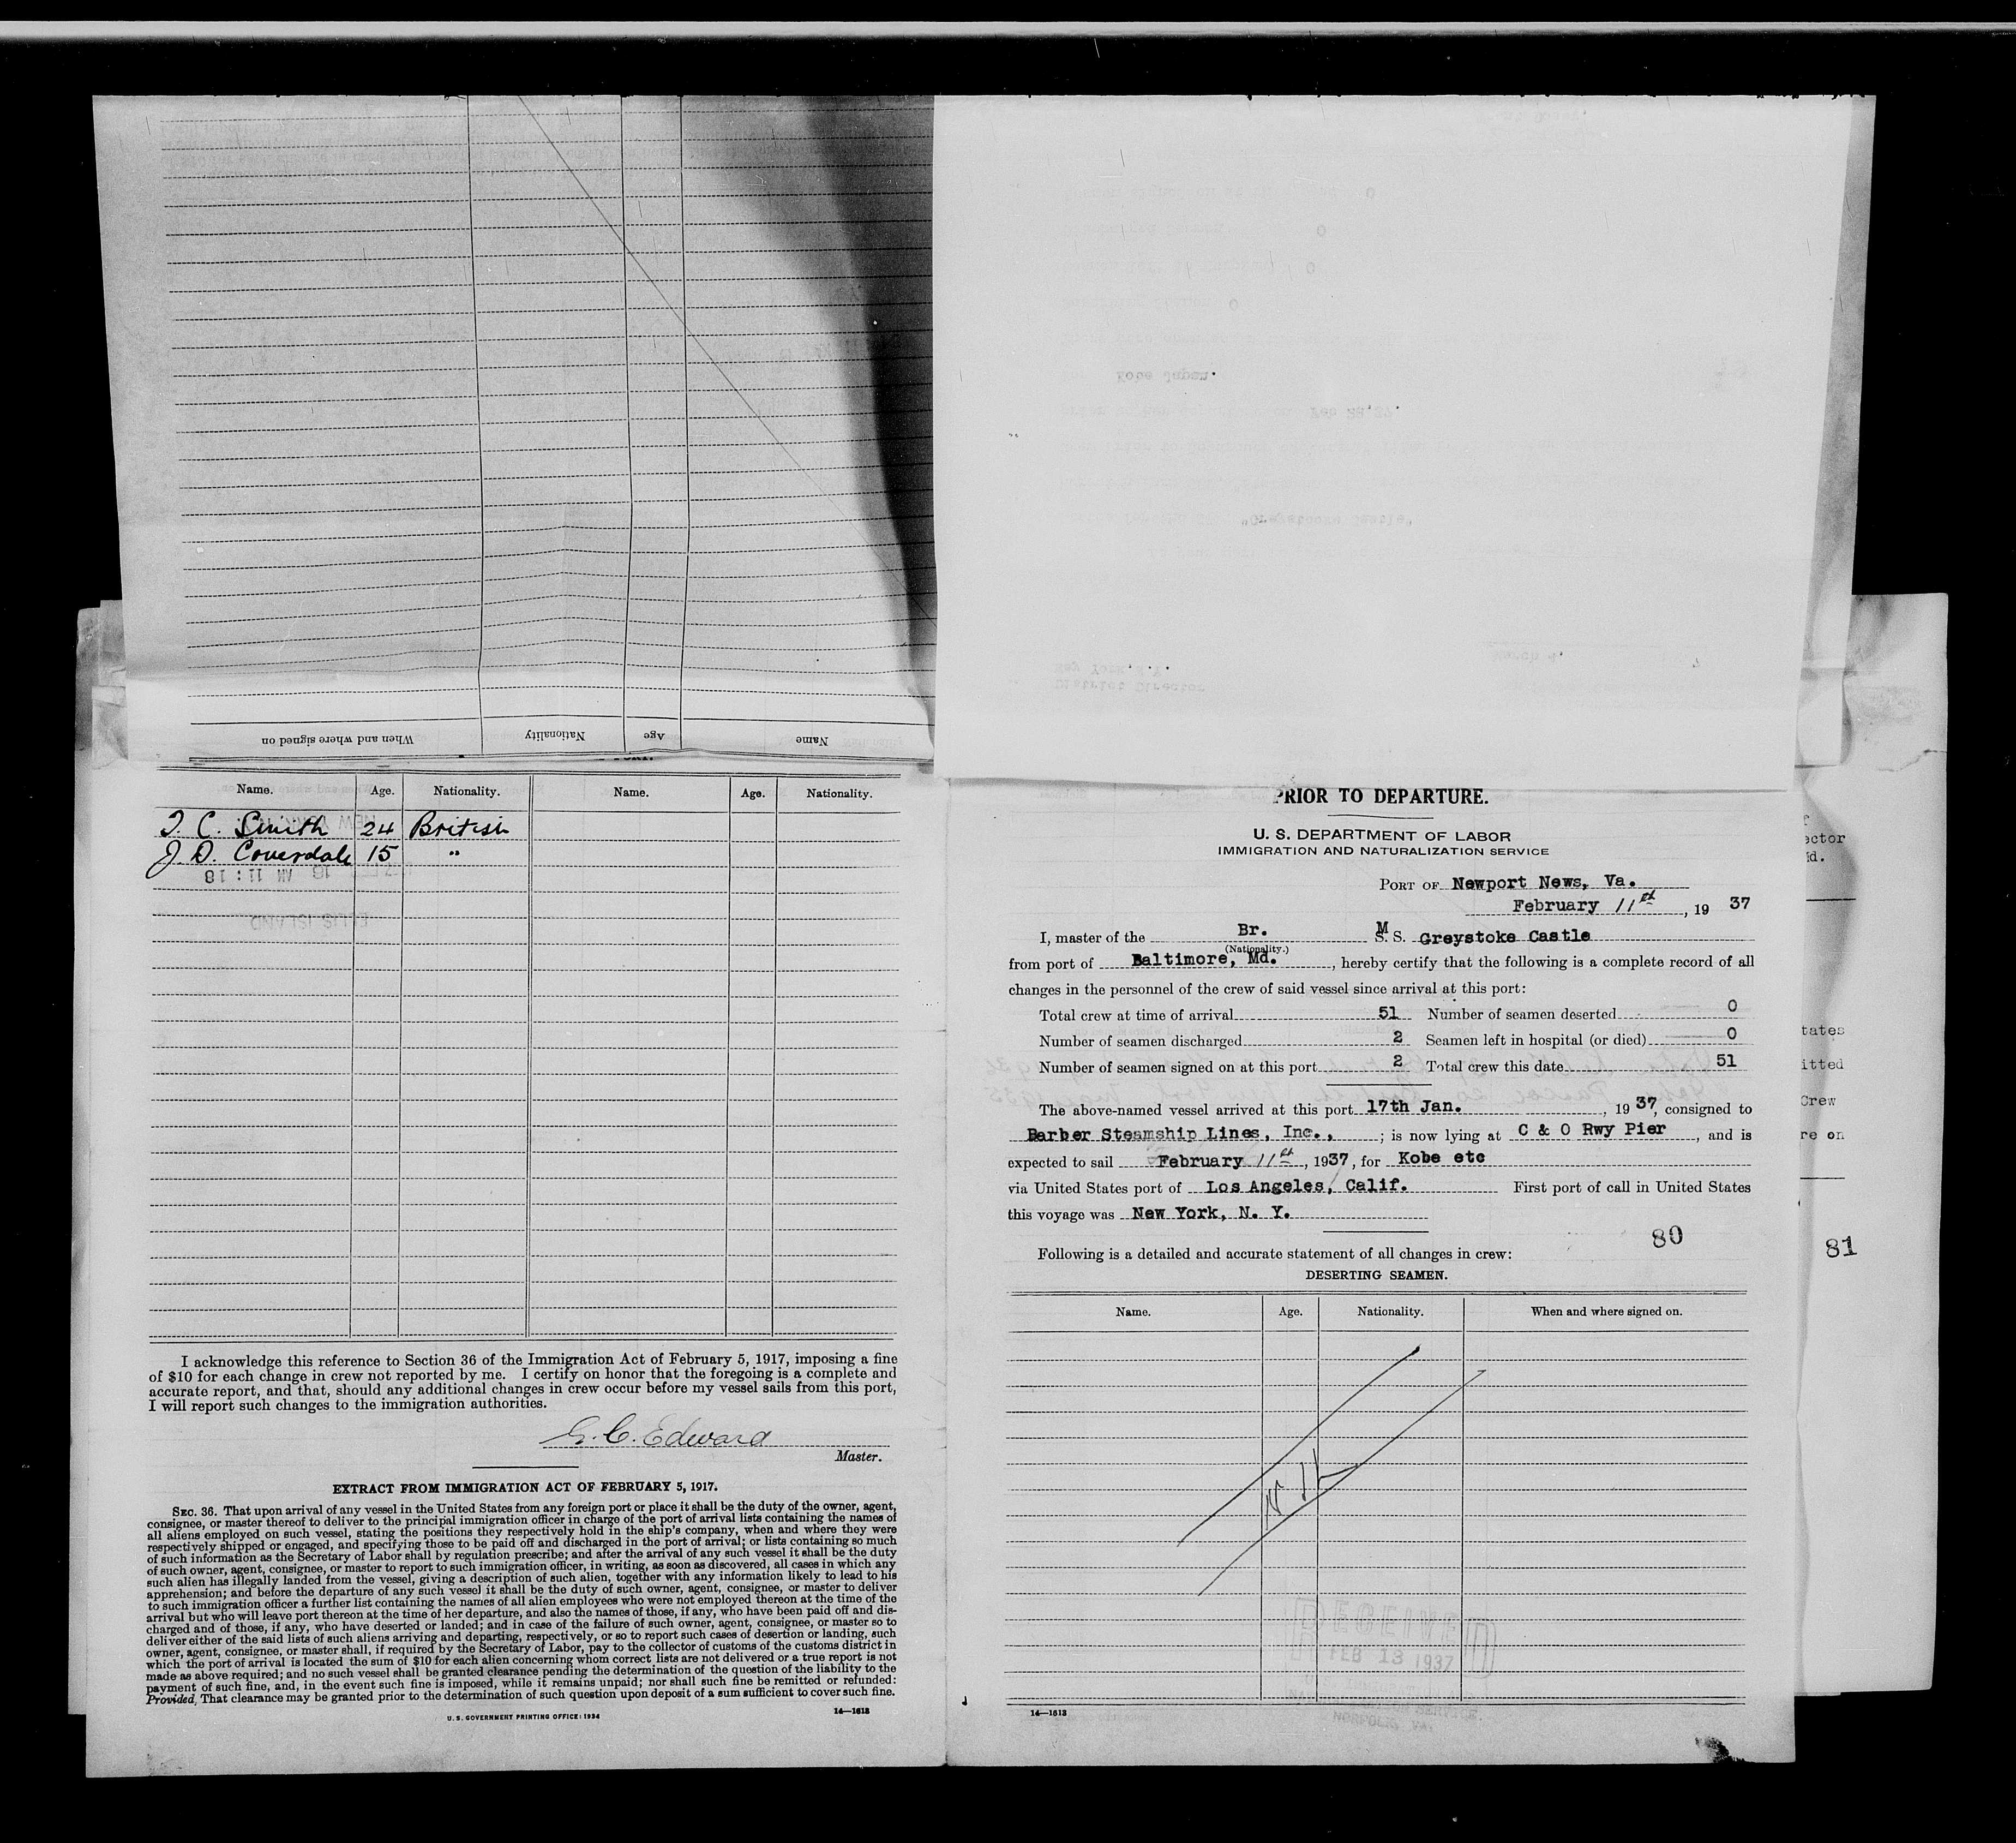 When and where signed on
Nationality
Age
Name
Name. Age. Nationality. Name. Age. Nationality.
J. C. Smith 24 British
J. D. Coverdale 15 "
18 AM 11:18
ELLIS ISLAND
I acknowledge this reference to Section 36 of the Immigration Act of February 5, 1917, imposing a fine
of $10 for each change in crew not reported by me. I certify on honor that the foregoing is a complete and
accurate report, and that, should any additional changes in crew occur before my vessel sails from this port,
I will report such changes to the immigration authorities.
G. C. Edward
Master.
EXTRACT FROM IMMIGRATION ACT OF FEBRUARY 5, 1917.
SEC. 36. That upon arrival of any vessel in the United States from any foreign port or place it shall be the duty of the owner, agent,
consignee, or master thereof to deliver to the principal immigration officer in charge of the port of arrival lists containing the names of
all aliens employed on such vessel, stating the positions they respectively hold in the ship's company, when and where they were
respectively shipped or engaged, and specifying those to be paid off and discharged in the port of arrival; or lists containing so much
of such information as the Secretary of Labor shall by regulation prescribe; and after the arrival of any such vessel it shall be the duty
of such owner, agent, consignee, or master to report to such immigration officer, in writing, as soon as discovered, all cases in which any
such alien has illegally landed from the vessel, giving a description of such alien, together with any information likely to lead to his
apprehension; and before the departure of any such vessel it shall be the duty of such owner, agent, consignee, or master to deliver
to such immigration officer a further list containing the names of all alien employees who were not employed thereon at the time of the
arrival but who will leave port thereon at the time of her departure, and also the names of those, if any, who have been paid off and dis-
charged and of those, if any, who have deserted or landed; and in case of the failure of such owner, agent, consignee, or master so to
deliver either of the said lists of such aliens arriving and departing, respectively, or so to report such cases of desertion or landing, such
owner, agent, consignee, or master shall, if required by the Secretary of Labor, pay to the collector of customs of the customs district in
which the port of arrival is located the sum of $10 for each alien concerning whom correct lists are not delivered or a true report is not
made as above required; and no such vessel shall be granted clearance pending the determination of the question of the liability to the
payment of such fine, and, in the event such fine is imposed, while it remains unpaid; nor shall such fine be remitted or refunded:
Provided, That clearance may be granted prior to the determination of such question upon deposit of a sum sufficient to cover such fine.
U. S. GOVERNMENT PRINTING OFFICE: 1934 14—1613
PRIOR TO DEPARTURE.
U. S. DEPARTMENT OF LABOR
IMMIGRATION AND NATURALIZATION SERVICE
PORT OF Newport News, Va.
February 11th, 1937
I, master of the Br. M S. S. Greystoke Castle
(Nationality.)
from port of Baltimore, Md., hereby certify that the following is a complete record of all
changes in the personnel of the crew of said vessel since arrival at this port:
Total crew at time of arrival 51 Number of seamen deserted 0
Number of seamen discharged 2 Seamen left in hospital (or died) 0
Number of seamen signed on at this port 2 Total crew this date 51
The above-named vessel arrived at this port 17th Jan., 1937, consigned to
Barber Steamship Lines, Inc., ; is now lying at C & O Rwy Pier, and is
expected to sail February 11th, 1937, for Kobe etc
via United States port of Los Angeles, Calif. First port of call in United States
this voyage was New York, N. Y.
80
Following is a detailed and accurate statement of all changes in crew:
DESERTING SEAMEN.
Name. Age. Nationality. When and where signed on.
RECEIVED
FEB 13 1937
NORFOLK, VA.
14—1613
ector
Md.
tates
itted
Crew
re on
81